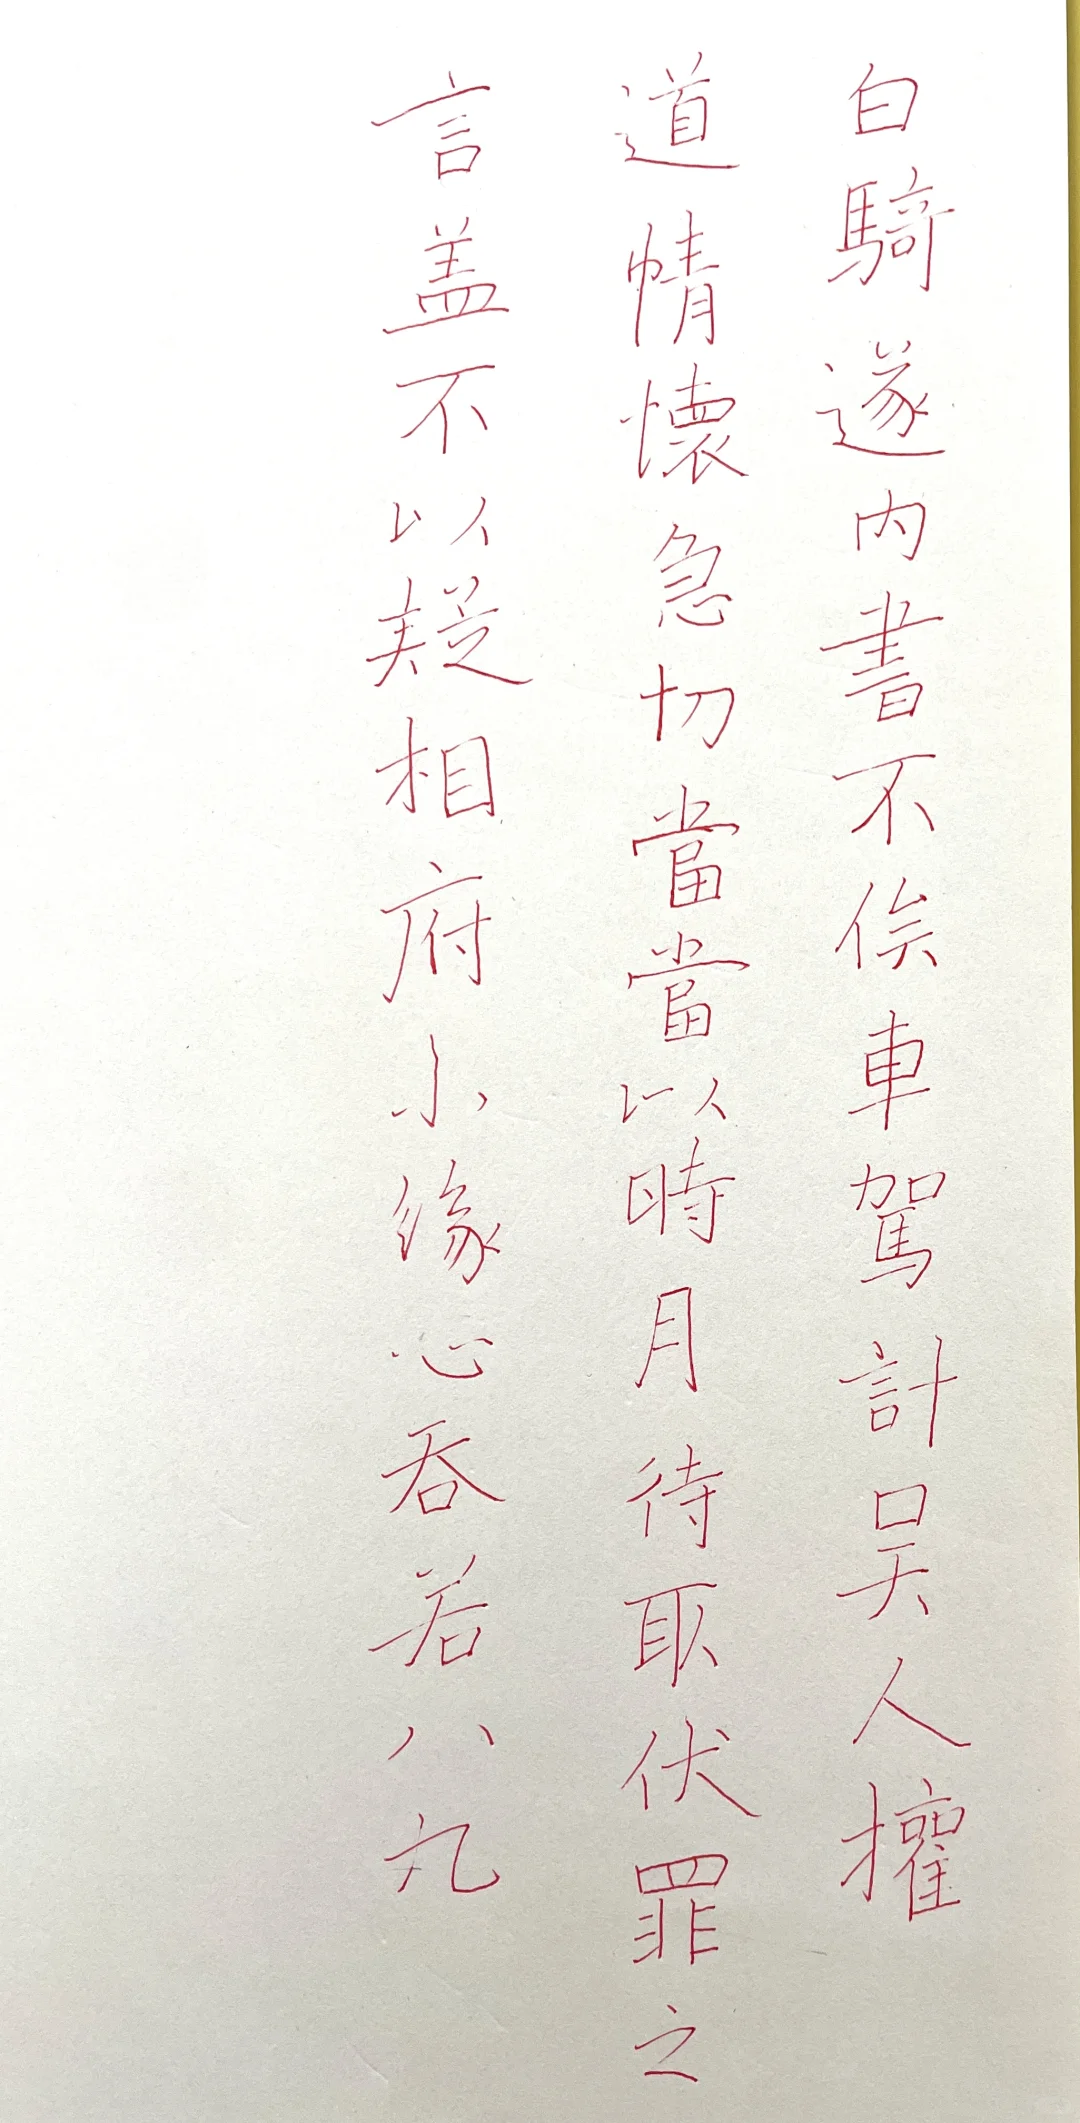 白騎遂内書不俟車駕計吴人權
道情懷急切當當以時月待取伏罪之
言盖不以疑相府小缘心吞若八九